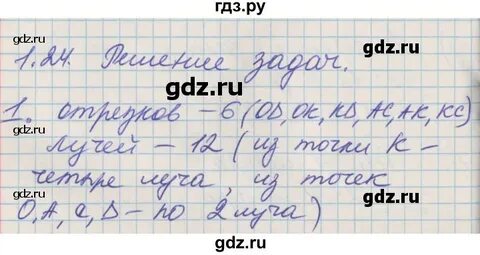 гдз.ру
1.24. Решение задач.
1. отрезков – 6 (OD, OK, KD, AC, AK, KC)
лучей – 12 (из точки K –
четыре луча, из точек
O, A, C, D – по 2 луча)
gdz.ru
gdz.ru
gdz.ru
gdz.ru
gdz.ru
gdz.ru